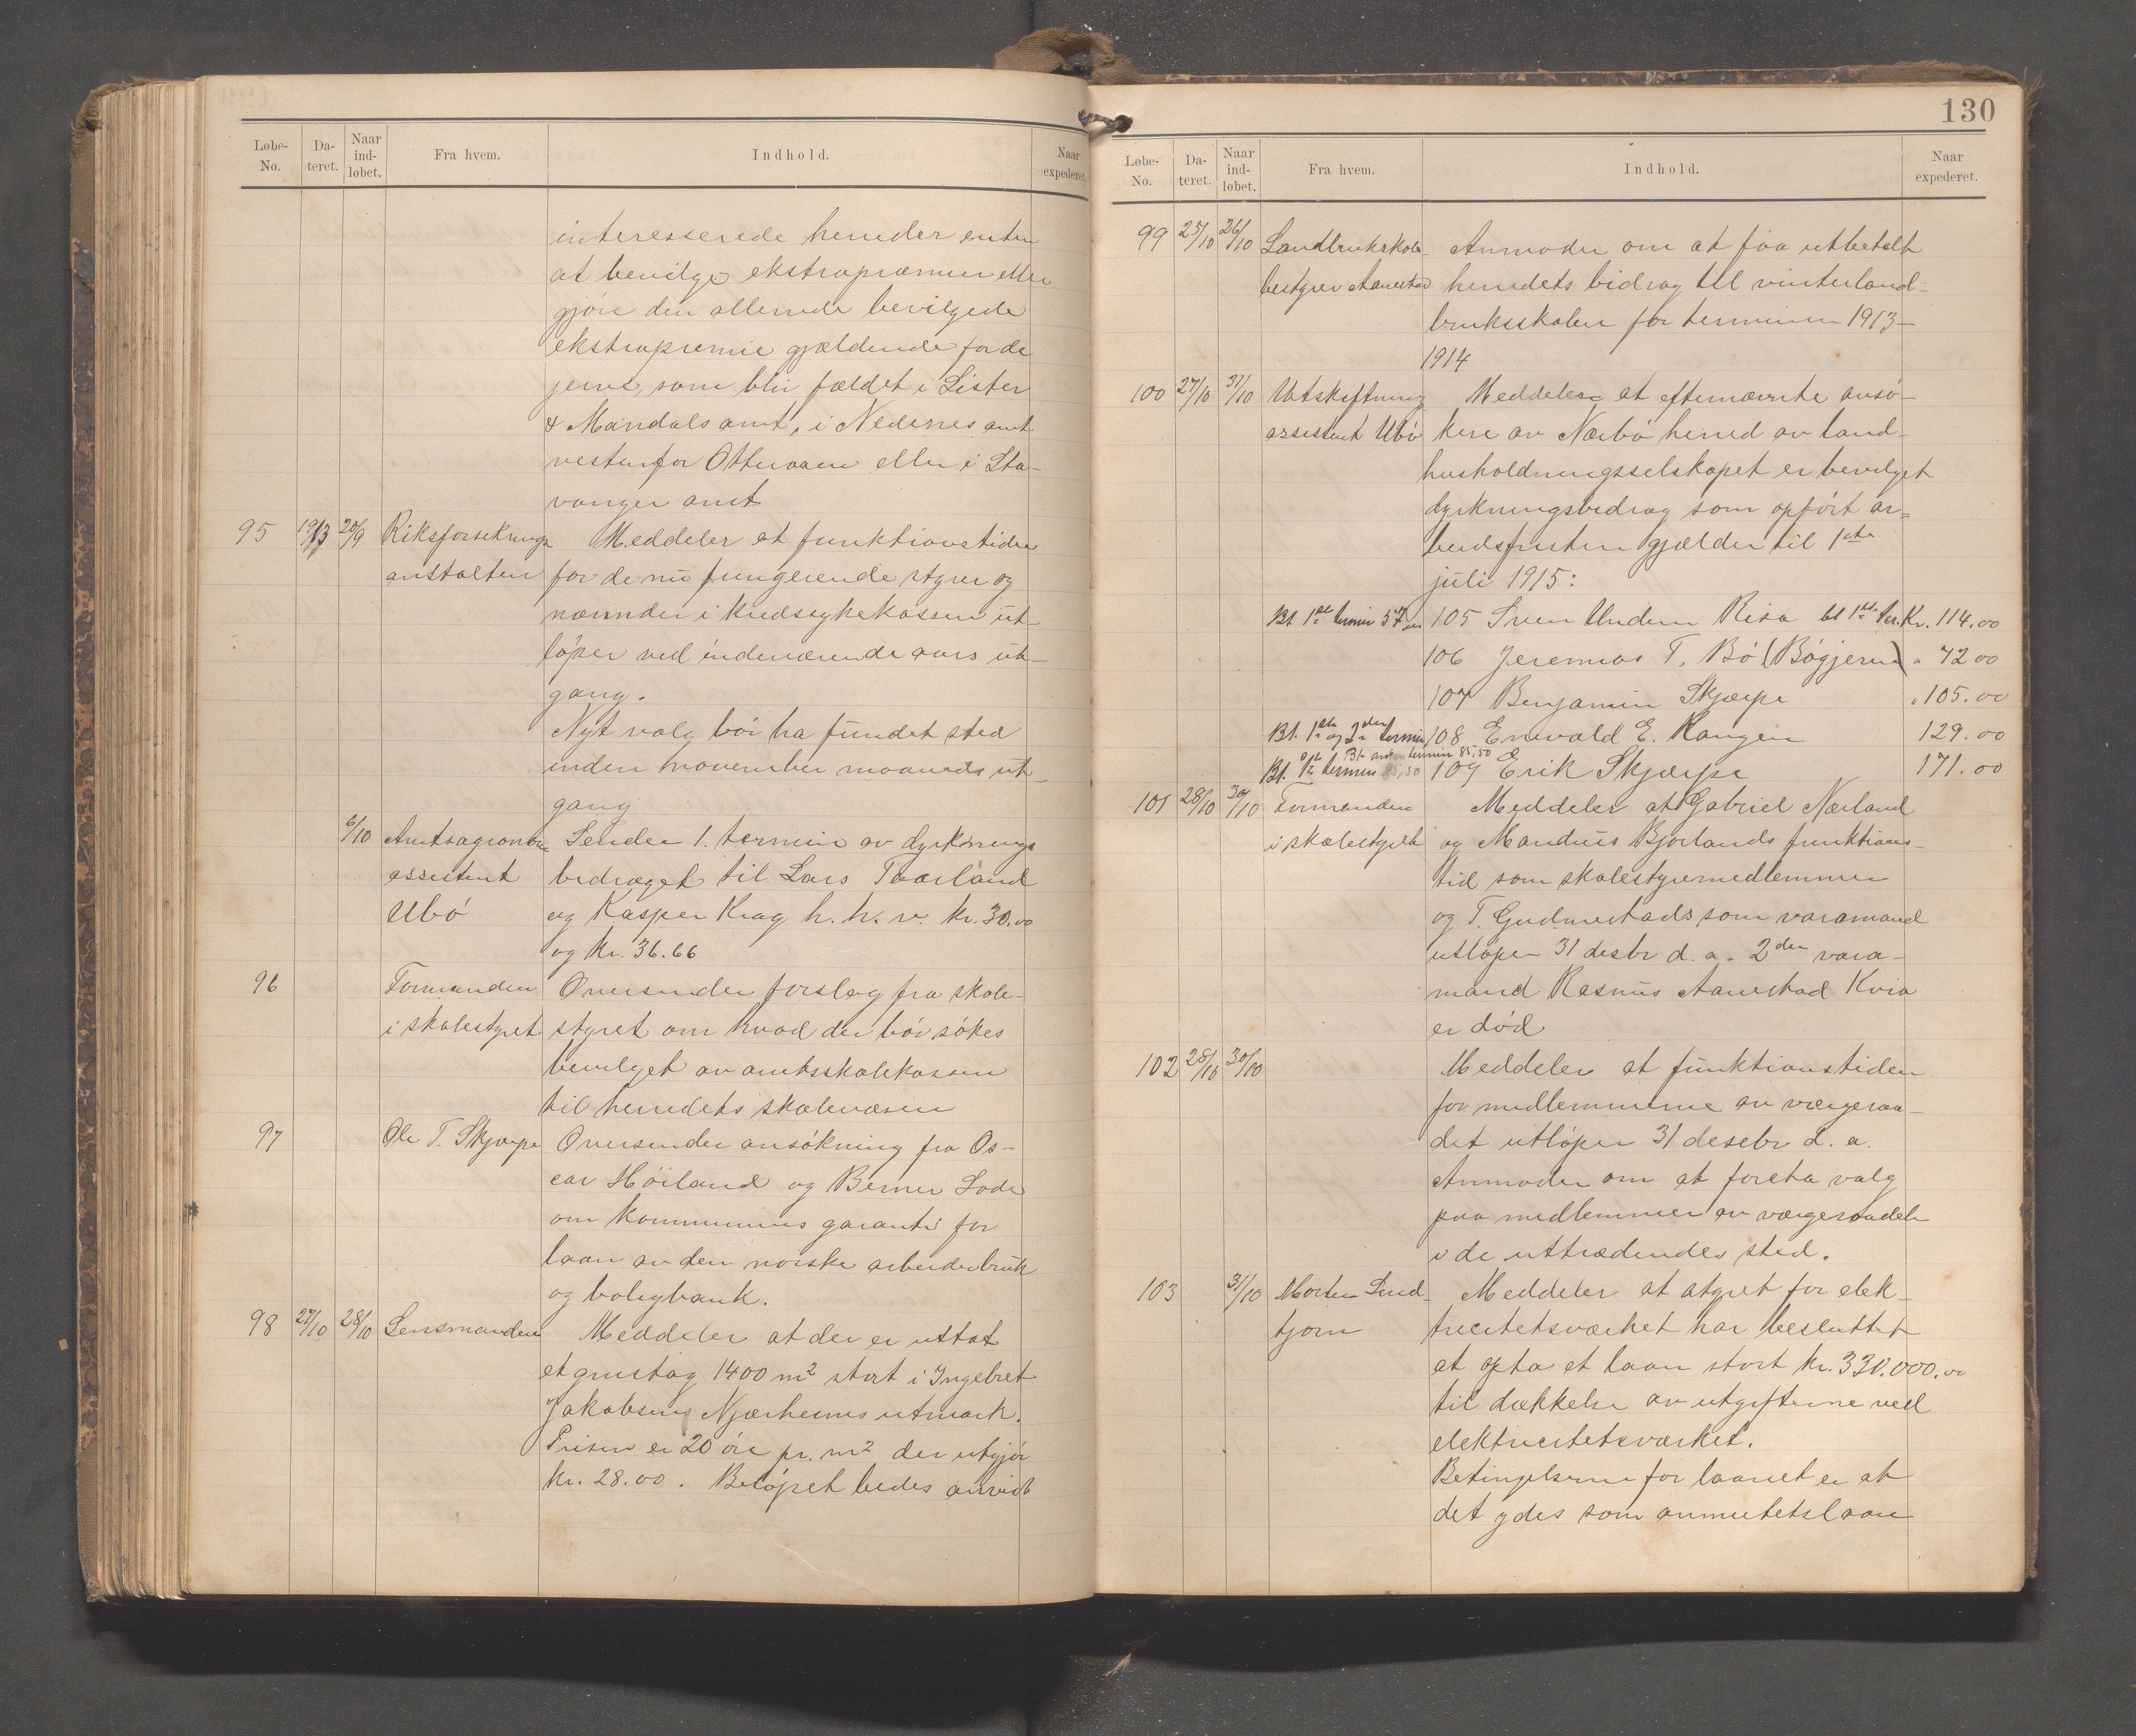 Løbe-No. Da-teret. Naar ind-løbet. Fra hvem. Indhold. Naar expederet.
interesserede herreder enten
at bevilge ekstrapræmier eller
gjøre den allerede bevilgede
ekstrapremie gjældende for de
jerve, som blir fældet i Lister
& Mandals amt, i Nedenes amt
vestenfor Otteraaen eller i Sta-
vanger amt
95 20/9 Riksforsekrings Meddeler at funktionstiden
anstalten for de nu fungerende styrer og
nævnder i kredssykekassen ut-
löper ved indeværende aars ut-
gang.
Nyt valg bör ha fundet sted
inden november maaneds ut-
gang
6/10 Amtsagronom Sender 1. termin av dyrknings
assistent bedraget til Lars Taarland
Ubö og Kasper Krag h. h. v. kr. 30.00
og kr. 36.66
96 Formanden Oversender forslag fra skole-
i skolestyret styret om hvad der bör sökes
bevilget av amtsskolekassen
til herredets skolevæsen
97 Ole T. Skjærpe Oversender ansökning fra Os-
car Höiland og Berner Lode
om kommunens garanti for
laan av den norske arbeiderbruk
og boligbank.
98 27/10 28/10 Lensmanden Meddeler at der er uttat
et grustag 1400 m² stort i Ingebret
Jakobsens Njærheims utmark.
Prisen er 20 öre pr. m² der utgjör
kr. 28.00. Belöpet bedes anvist
130
Løbe-No. Da-teret. Naar ind-løbet. Fra hvem. Indhold. Naar expederet.
99 25/10 26/10 Landbrukskole- Anmoder om at faa utbetalt
bestyrer Aanestad herredets bidrag til vinterland-
bruksskolen for terminen 1913-
1914
100 27/10 31/10 Utskiftning Meddeler at efternævnte ansö-
assistent Ubö kere av Nærbö herred av land-
husholdningsselskapet er bevilget
dyrkningsbidrag som opfört ar-
beidsfristen gjælder til 1ste
juli 1915:
Bt. 1ste termin 57 105 Sven Undem Risa bt 1ste ter. Kr. 114.00
106 Jeremias T. Bö (Bögjeren) " 72 00
107 Benjamin Skjærpe " 105.00
Bt. 1ste og 2den termin 108 Enevald E. Kangen 129.00
Bt. termin 85,50
Bt. 1ste termin 85,50 109 Erik Skjærpe 171.00
101 28/10 30/10 Formanden Meddeler at Gabriel Nærland
i skolestyret og Mandius Bjorlands funktions-
tid som skolestyremedlemmer
og T. Gudmestads som varamand
utlöper 31 desbr d. a. 2den vara-
mand Rasmus Aanestad Kvia
er död
102 28/10 30/10 Meddeler at funktionstiden
for medlemmerne av værgeraa-
det utlöper 31 desebr d. a.
Anmoder om at foreta valg
paa medlemmer av værgeraadet
i de uttrædendes sted.
103 31/10 Morten Lind- Meddeler at styret for elek-
tjorn tricitetsværket har besluttet
at opta et laan stort kr. 330.000.00
til dækkelse av utgifterne ved
elektricitetsværket.
Betingelserne for laanet er at
det ydes som annuitetslaan